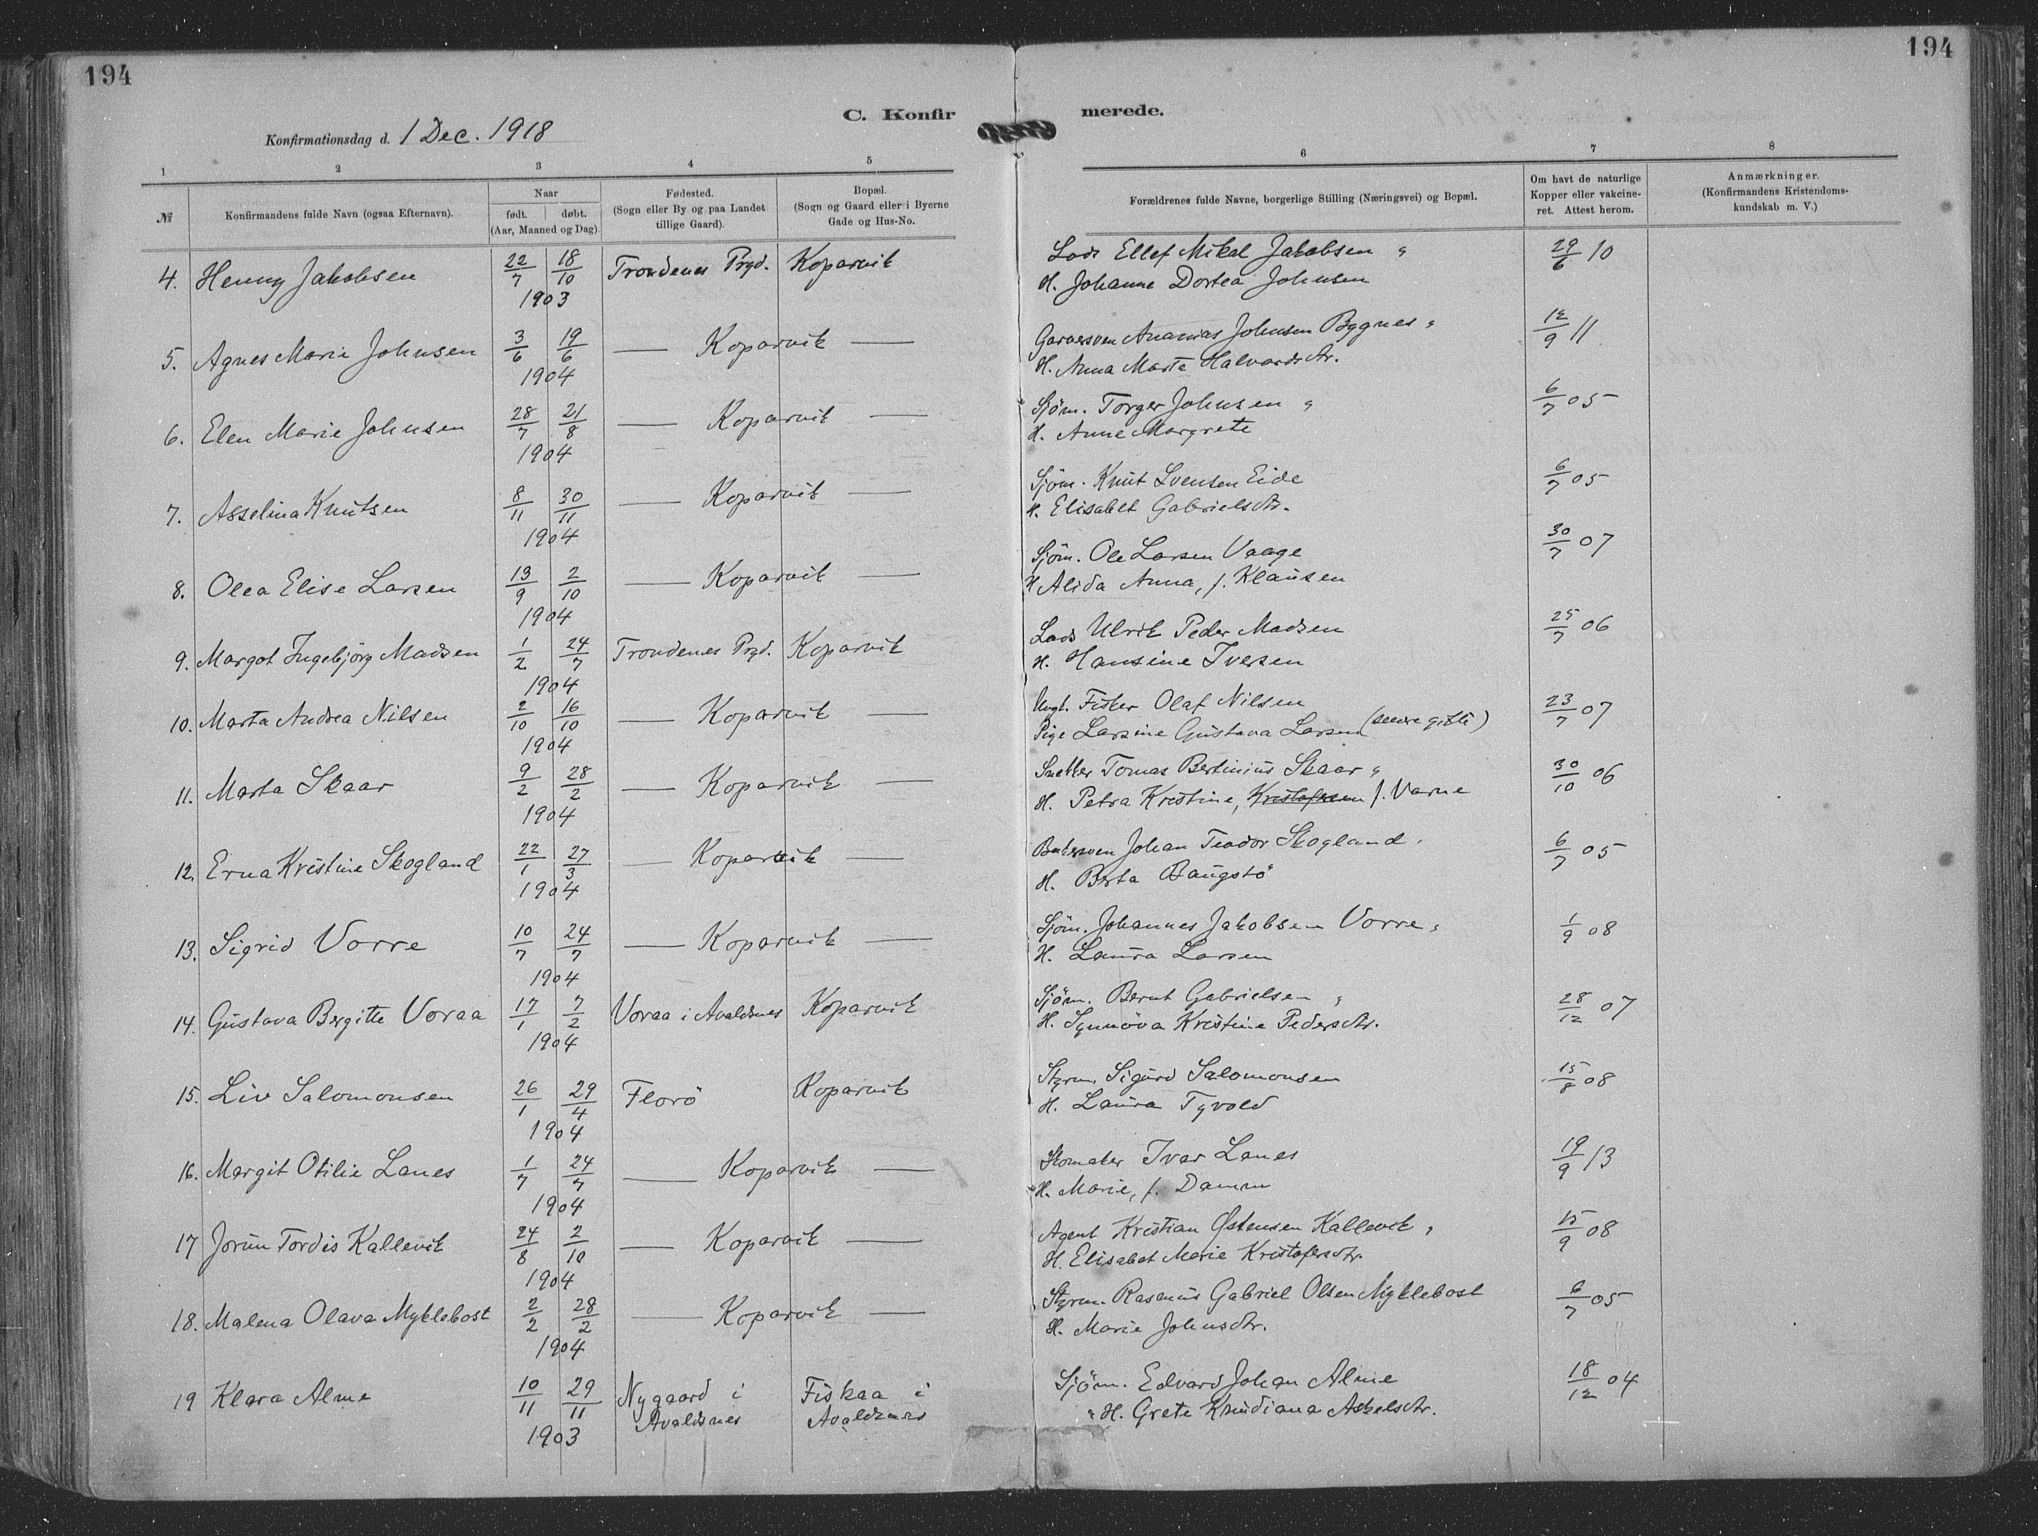 194
194
C. Konfirmerede.
Konfirmationsdag d. 1 Dec. 1918
1 2 3 4 5 6 7 8
№
Konfirmandens fulde Navn (ogsaa Efternavn).
Naar
født. døbt.
(Aar, Maaned og Dag).
Fødested.
(Sogn eller By og paa Landet
tillige Gaard).
Bopæl.
(Sogn og Gaard eller i Byerne
Gade og Hus-No.
Forældrenes fulde Navne, borgerlige Stilling (Næringsvei) og Bopæl.
Om havt de naturlige
Kopper eller vakcine-
ret. Attest herom.
Anmærkninger.
(Konfirmandens Kristendoms-
kundskab m. V.)
4. Henny Jakobsen 22/7 18/10 Trondenes Prgd. Koparvik Lods Ellef Mikal Jakobsen " 29/6 10
1903 H. Johanne Dortea Johnsen
5. Agnes Marie Johnsen 3/6 19/6 — Koparvik — Garversven Ananias Johnsen Bygnes " 12/9 11
1904 H. Anna Marta Halvardsdtr.
6. Elen Marie Johnsen 28/7 21/8 — Koparvik — Sjöm. Torger Johnsen " 6/7 05
1904 H. Anne Margrete
7. Asselina Knutsen 8/11 30/11 — Koparvik — Sjöm. Knut Svensen Eide 6/7 05
1904 H. Elisabet Gabrielsdtr.
8. Olea Elise Larsen 13/9 2/10 — Koparvik — Sjöm. Ole Larsen Vaage 30/7 07
1904 H Alida Anna, f. Klausen
9. Margot Ingebjörg Madsen 1/2 24/7 Trondenes Prgd. Koparvik Lods Ulrik Peder Madsen 25/7 06
1904 H. Hansine Iversen
10. Marta Andrea Nilsen 2/10 16/10 — Koparvik — Ungk. Fisker Olaf Nilsen 23/7 07
1904 Pige Larsine Gustava Larsen (senere gifte)
11. Marta Skaar 9/2 28/2 — Koparvik — Snekker Tomas Bertinius Skaar " 30/10 06
1904 H. Petra Kristine, Kristofersen f. Varne
12. Erna Kristine Skogland 22/1 27/3 — Koparvik — Johan Teodor Skogland, 6/7 05
1904 H. Berta Baugstö
13. Sigrid Vorre 10/7 24/7 — Koparvik — Sjöm. Johannes Jakobsen Vorre " 1/9 08
1904 H. Laura Larsen
14. Gustava Bergitte Voraa 17/1 7/2 Voraa i Avaldsnes Koparvik Sjöm. Bernt Gabrielsen " 28/12 07
1904 H. Synnöva Kristine Pedersdtr.
15. Liv Salomonsen 26/1 29/4 Florö Koparvik Styrm. Sigurd Salomonsen 15/8 08
1904 H. Laura Tyvold
16. Margit Otilie Lanes 1/7 24/7 — Koparvik — Skomaker Ivar Lanes 19/9 13
1904 H. Marie, f. Damm
17 Jorun Tordis Kallevik 24/8 2/10 — Koparvik — Agent Kristian Østensen Kallevik " 15/9 08
1904 H. Elisabet Marie Kristofersdtr.
18. Malena Olava Myklebost 2/2 28/2 — Koparvik — Styrm. Rasmus Gabriel Olsen Myklebost 6/7 05
1904 H. Marie Johnsdtr.
19 Klara Alme 10/11 29/11 Nygaard i Fiskaa i Sjöm. Edvard Johan Alme 18/12 04
1903 Avaldsnes Avaldsnes " H. Grete Knudiana Askelsdtr.